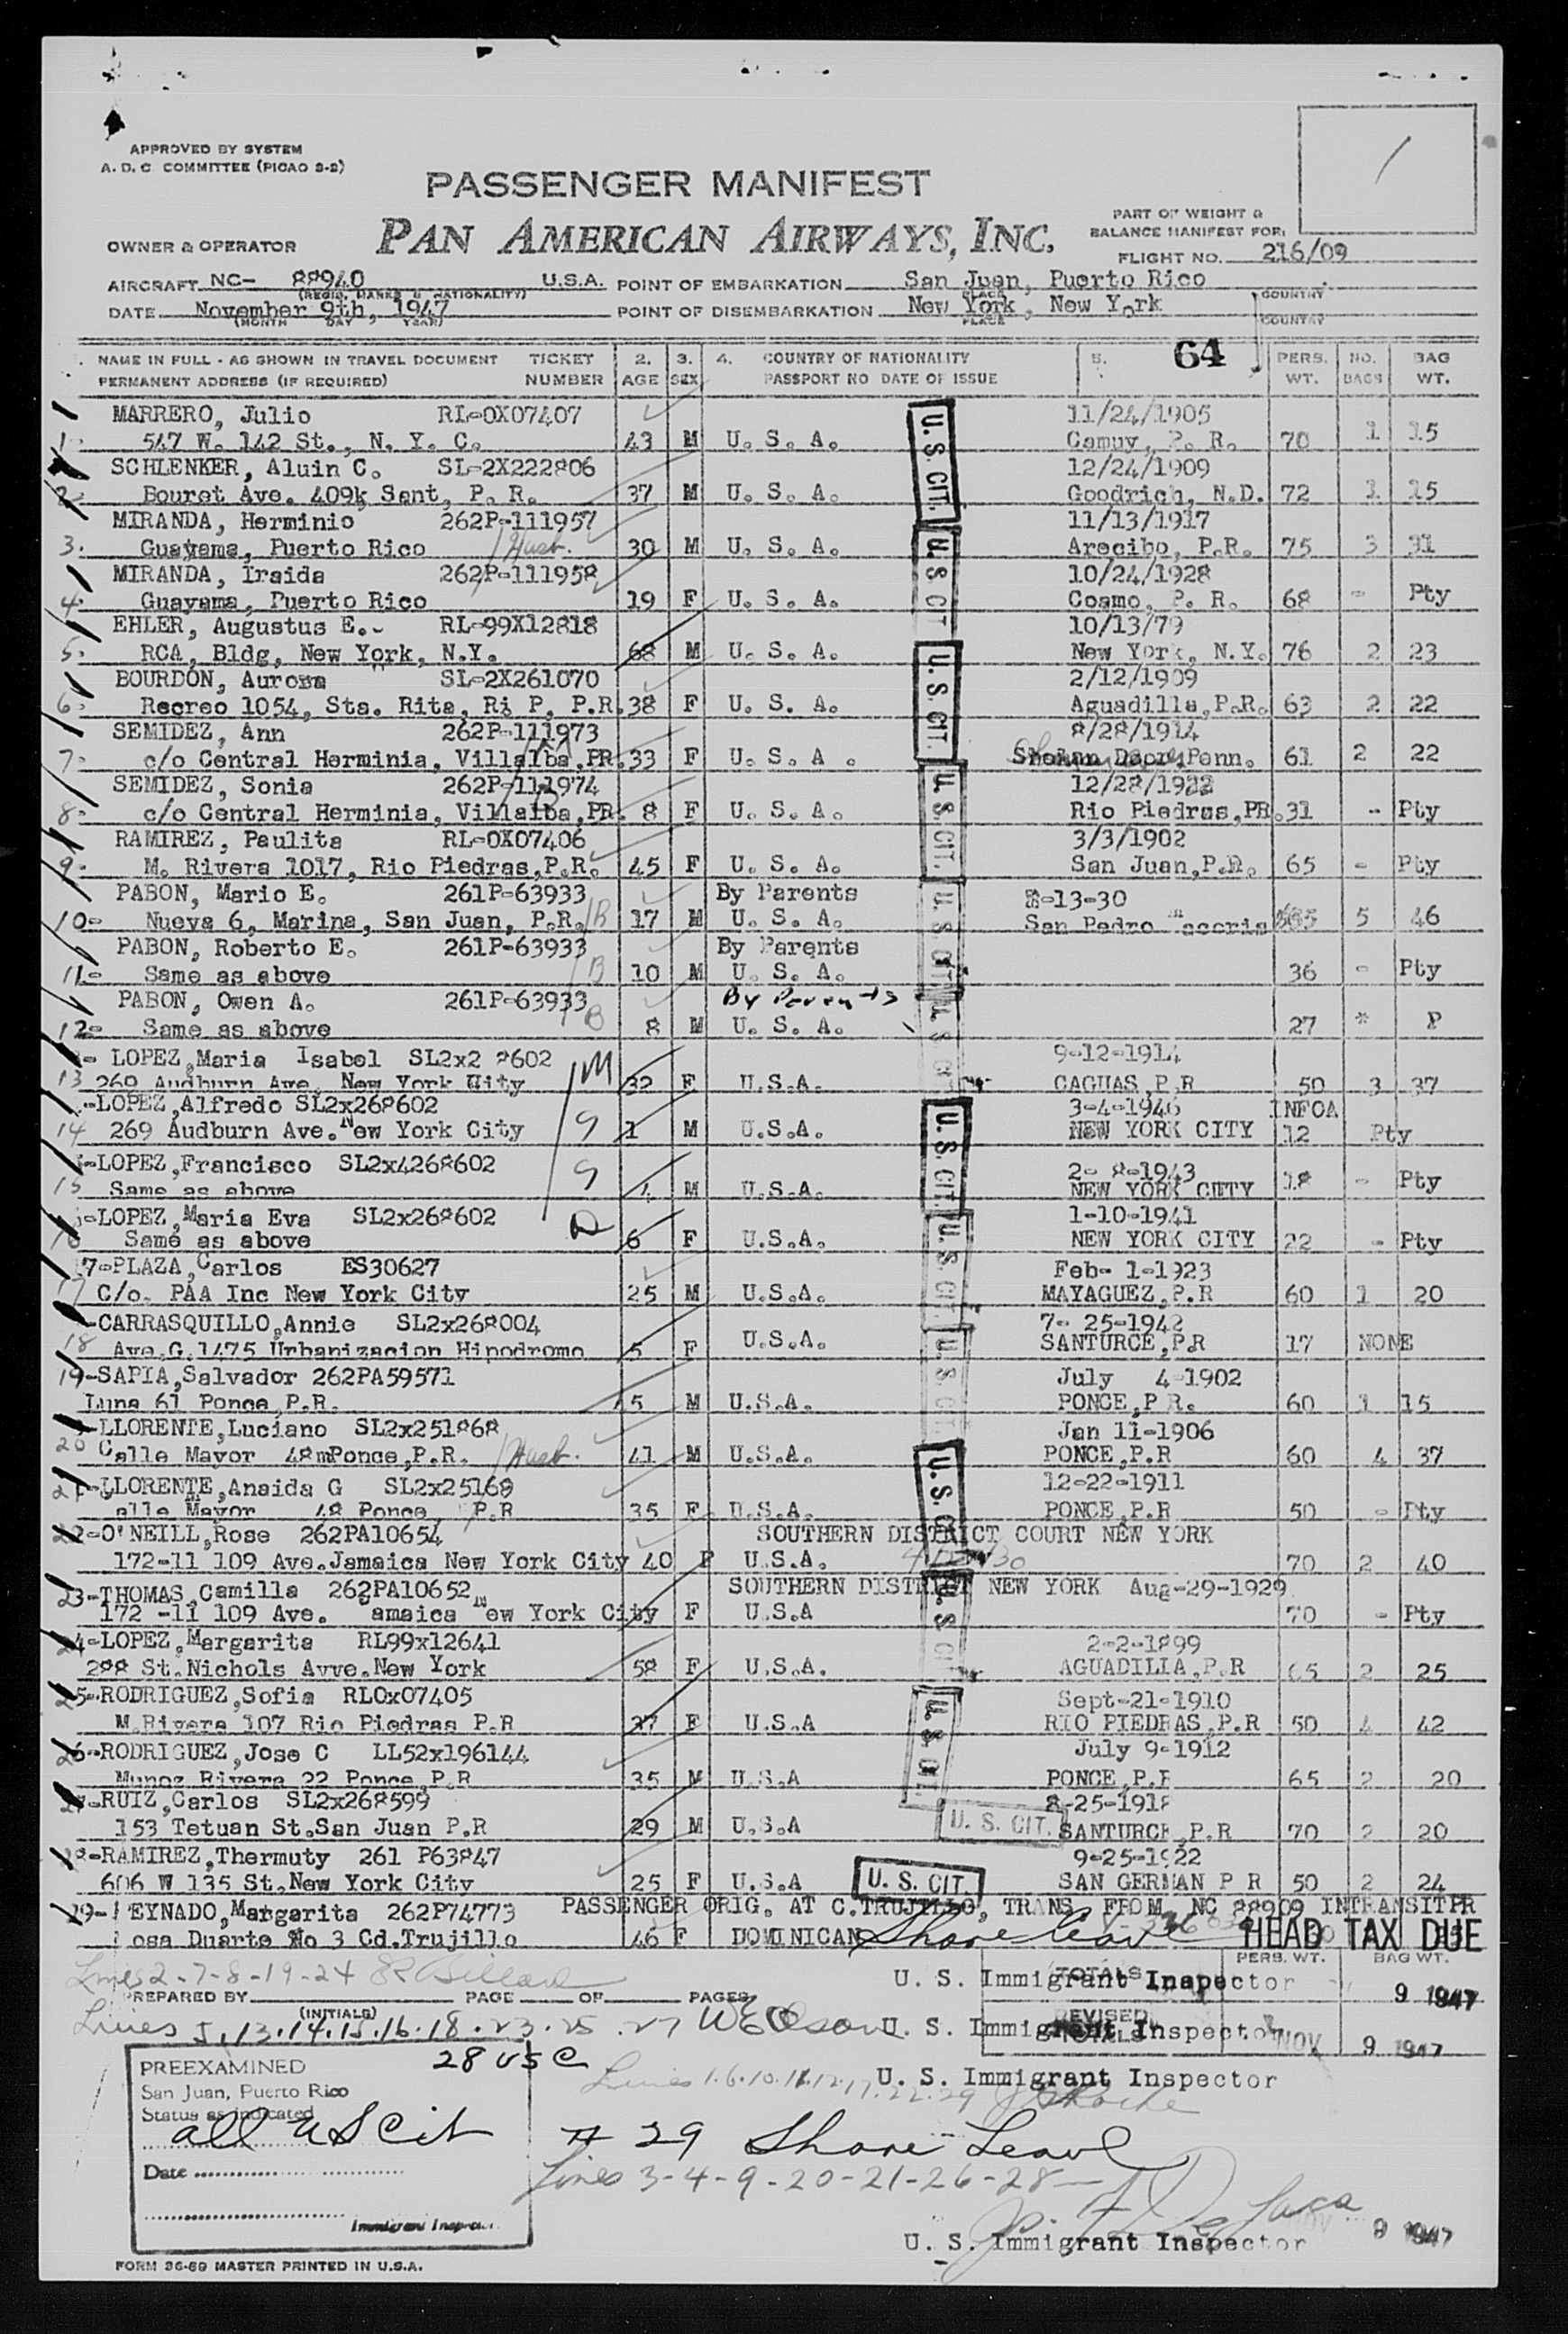 APPROVED BY SYSTEM
A. D. C COMMITTEE (PICAO 2-2)
PASSENGER MANIFEST
PAN AMERICAN AIRWAYS, INC.
PART OF WEIGHT &
BALANCE MANIFEST FOR:
OWNER & OPERATOR
FLIGHT NO. 216/09
AIRCRAFT NC- 88940 U.S.A. POINT OF EMBARKATION San Juan, Puerto Rico
(REGIS. MARKS & NATIONALITY) PLACE COUNTRY
DATE November 9th, 1947 POINT OF DISEMBARKATION New York, New York
(MONTH DAY YEAR) PLACE COUNTRY
NAME IN FULL - AS SHOWN IN TRAVEL DOCUMENT TICKET 2. 3. 4. COUNTRY OF NATIONALITY 5. 64 PERS. NO. BAG
PERMANENT ADDRESS (IF REQUIRED) NUMBER AGE SEX PASSPORT NO DATE OF ISSUE WT. BAGS WT.
MARRERO, Julio RL-0X07407 11/24/1905
1. 547 W. 142 St., N. Y. C. 43 M U. S. A. Camuy, P. R. 70 1 15
SCHLENKER, Aluin C. SL-2X222806 12/24/1909
2. Bouret Ave. 409k Sant, P. R. 37 M U. S. A. Goodrich, N.D. 72 1 15
MIRANDA, Herminio 262P-111957 11/13/1917
3. Guayama, Puerto Rico Husb. 30 M U. S. A. Arecibo, P.R. 75 3 31
MIRANDA, Iraida 262P-111958 10/24/1928
4. Guayama, Puerto Rico 19 F U. S. A. Coamo, P. R. 68 - Pty
EHLER, Augustus E. RL-99X12818 10/13/79
5. RCA, Bldg, New York, N.Y. 68 M U. S. A. New York, N.Y. 76 2 23
BOURDON, Aurora SL-2X261070 2/12/1909
6. Recreo 1054, Sta. Rita, Ri P, P.R. 38 F U. S. A. Aguadilla, P.R. 63 2 22
SEMIDEZ, Ann 262P-111973 8/28/1914
7. c/o Central Herminia, Villalba, PR. 33 F U. S. A. Penn. 61 2 22
SEMIDEZ, Sonia 262P-111974 12/28/19
8. c/o Central Herminia, Villalba, PR. 8 F U. S. A. Rio Piedras, PR. 31 - Pty
RAMIREZ, Paulita RL-0X07406 3/3/1902
9. M. Rivera 1017, Rio Piedras, P.R. 45 F U. S. A. San Juan, P.R. 65 - Pty
PABON, Mario E. 261P-63933 By Parents -13-30
10- Nueva 6, Marina, San Juan, P.R. B 17 M U. S. A. San Pedro Macoris 5 46
PABON, Roberto E. 261P-63933 By Parents
11- Same as above B 10 M U. S. A. 36 - Pty
PABON, Owen A. 261P-63933 By Parents
12- Same as above B 8 M U. S. A. 27 * P
LOPEZ, Maria Isabel SL2x2 8602 9-12-1914
13 269 Audburn Ave. New York City M 32 F U.S.A. CAGUAS P.R 50 3 37
-LOPEZ, Alfredo SL2x268602 3-4-1946 INFOA
14 269 Audburn Ave. New York City S 1 M U.S.A. NEW YORK CITY 12 Pty
-LOPEZ, Francisco SL2x4268602 2- 8-1943
15 Same as above S 4 M U.S.A. NEW YORK CITY 18 - Pty
-LOPEZ, Maria Eva SL2x268602 1-10-1941
16 Same as above D 6 F U.S.A. NEW YORK CITY 22 - Pty
7-PLAZA, Carlos ES30627 Feb- 1-1923
17 C/o. PAA Inc New York City 25 M U.S.A. MAYAGUEZ, P.R 60 1 20
-CARRASQUILLO, Annie SL2x268004 7- 25-1942
18 Ave.G.1475 Urbanizacion Hipodromo 5 F U.S.A. SANTURCE, P.R 17 NONE
19-SAPIA, Salvador 262PA59571 July 4-1902
Luna 61 Ponce, P.R. 45 M U.S.A. PONCE, P R. 60 1 15
-LLORENTE, Luciano SL2x251868 Jan 11-1906
20 Calle Mayor 48m Ponce, P.R. Husb. 41 M U.S.A. PONCE, P.R 60 4 37
21-LLORENTE, Anaida G SL2x25168 12-22-1911
alle Mayor 48 Ponce P.R 35 F U.S.A. PONCE, P.R 50 - Pty
22-O'NEILL, Rose 262PA10654 SOUTHERN DISTRICT COURT NEW YORK
172-11 109 Ave. Jamaica New York City 40 F U.S.A. 70 2 40
23-THOMAS, Camilla 262PA10652 SOUTHERN DISTRICT NEW YORK Aug-29-1929
172 -11 109 Ave. amaica New York City F U.S.A 70 - Pty
24-LOPEZ, Margarita RL99x12641 2-2-1899
288 St. Nichols Avve. New York 58 F U.S.A. AGUADILLA, P.R 65 2 25
25-RODRIGUEZ, Sofia RL0x07405 Sept-21-1910
M.Rivera 107 Rio Piedras P.R 37 F U.S.A RIO PIEDRAS, P.R 50 4 42
26-RODRIGUEZ, Jose C LL52x196144 July 9-1912
Munoz Rivera 22 Ponce, P.R 35 M U.S.A PONCE, P.R 65 2 20
27-RUIZ, Carlos SL2x268599 8-25-1918
153 Tetuan St. San Juan P.R 29 M U.S.A U. S. CIT. SANTURCE, P.R 70 2 20
28-RAMIREZ, Thermuty 261 P63847 9-25-1922
606 W 135 St, New York City 25 F U.S.A U. S. CIT. SAN GERMAN P R 50 2 24
29- EYNADO, Margarita 262P74773 PASSENGER ORIG. AT C.TRUJILLO, TRANS. FROM NC 88909 INTRANSITPR
osa Duarte No 3 Cd.Trujillo 46 F DOMINICAN Shore leave HEAD TAX DUE
Lines 2-7-8-19-24
U. S. Immigrant Inspector TOTALS PERS. WT. BAG WT. 9 1947
PREPARED BY PAGE OF PAGES
(INITIALS)
Lines 5.13.14.15.16.18.23.25.27 U. S. Immigrant Inspector REVISED TOTALS NOV 9 1947
28 USC
Lines 1.6.10.11.12.17.22.29 U. S. Immigrant Inspector
PREEXAMINED
San Juan, Puerto Rico
Status as indicated
all US Cit
# 29 Shore Leave
Date
Lines 3-4-9-20-21-26-28
Immigrant Inspector
U. S. Immigrant Inspector NOV 9 1947
FORM 36-69 MASTER PRINTED IN U.S.A.